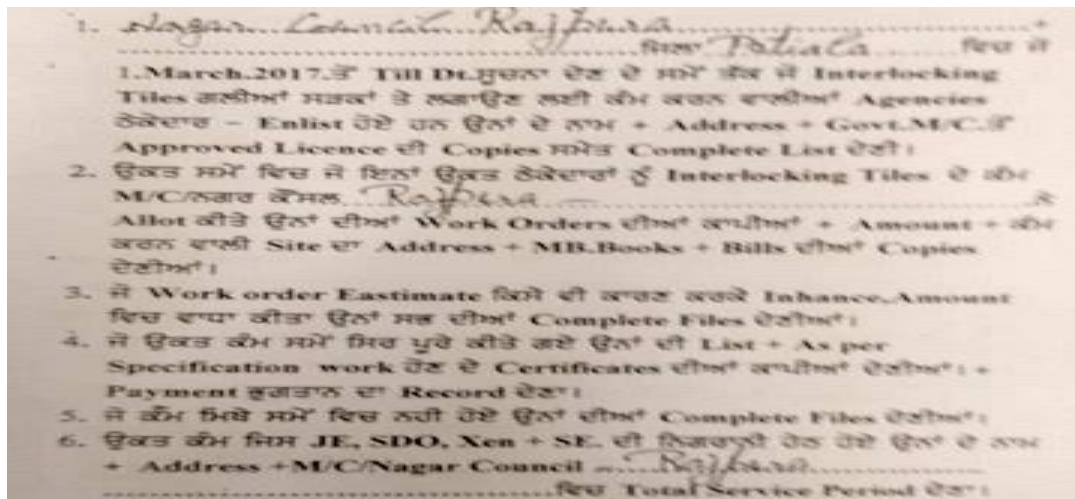 1. Nagar Council Rajpura +
ਜਿਲਾ Patiala ਵਿਚ ਜੋ
1.March.2017.ਤੋਂ Till Dt.ਸੂਚਨਾ ਦੇਣ ਦੇ ਸਮੇਂ ਤੱਕ ਜੋ Interlocking
Tiles ਗਲੀਆਂ ਸੜਕਾਂ ਤੇ ਲਗਾਉਣ ਲਈ ਕੰਮ ਕਰਨ ਵਾਲੀਆਂ Agencies
ਠੇਕੇਦਾਰ – Enlist ਹੋਏ ਹਨ ਉਨਾਂ ਦੇ ਨਾਮ + Address + Govt.M/C.ਤੋਂ
Approved Licence ਦੀ Copies ਸਮੇਤ Complete List ਦੇਣੀ।
2. ਉਕਤ ਸਮੇਂ ਵਿਚ ਜੋ ਇਨਾਂ ਉਕਤ ਠੇਕੇਦਾਰਾਂ ਨੂੰ Interlocking Tiles ਦੇ ਕੰਮ
M/C/ਨਗਰ ਕੌਂਸਲ Rajpura – ਨੇ
Allot ਕੀਤੇ ਉਨਾਂ ਦੀਆਂ Work Orders ਦੀਆਂ ਕਾਪੀਆਂ + Amount + ਕੰਮ
ਕਰਨ ਵਾਲੀ Site ਦਾ Address + MB.Books + Bills ਦੀਆਂ Copies
ਦੇਣੀਆਂ।
3. ਜੋ Work order Eastimate ਕਿਸੇ ਵੀ ਕਾਰਣ ਕਰਕੇ Inhance.Amount
ਵਿਚ ਵਾਧਾ ਕੀਤਾ ਉਨਾਂ ਸਭ ਦੀਆਂ Complete Files ਦੇਣੀਆਂ।
4. ਜੋ ਉਕਤ ਕੰਮ ਸਮੇਂ ਸਿਰ ਪੂਰੇ ਕੀਤੇ ਗਏ ਉਨਾਂ ਦੀ List + As per
Specification work ਹੋਣ ਦੇ Certificates ਦੀਆਂ ਕਾਪੀਆਂ ਦੇਣੀਆਂ। +
Payment ਭੁਗਤਾਨ ਦਾ Record ਦੇਣਾ।
5. ਜੋ ਕੰਮ ਮਿਥੇ ਸਮੇਂ ਵਿਚ ਨਹੀ ਹੋਏ ਉਨਾਂ ਦੀਆਂ Complete Files ਦੇਣੀਆਂ।
6. ਉਕਤ ਕੰਮ ਜਿਸ JE, SDO, Xen + SE. ਦੀ ਨਿਗਰਾਨੀ ਹੇਠ ਹੋਏ ਉਨਾਂ ਦੇ ਨਾਮ
+ Address +M/C/Nagar Council – Rajpura
ਵਿਚ Total Service Period ਦੇਣਾ।